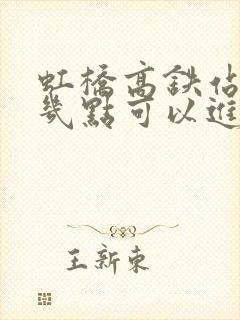 虹橋高鉄佔
幾點可以進
王新東